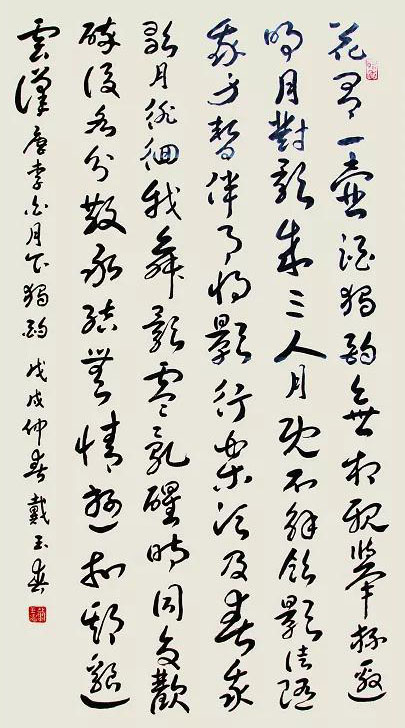 花間一壺酒獨酌無相親舉杯邀
明月對影成三人月既不解飲影徒隨
我身暫伴月將影行樂須及春我
歌月徘徊我舞影零亂醒時同交歡
醉後各分散永結無情遊相期邈
雲漢 唐李白月下獨酌 戊戌仲春戴玉春